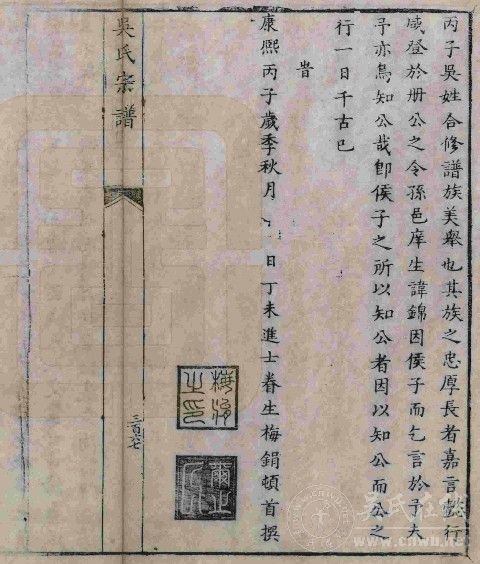 丙子吳姓合修譜族美舉也其族之忠厚長者嘉言懿行
咸登於册公之令孫邑庠生諱錦因侯子而乞言於予夫
予亦烏知公哉卽侯子之所以知公者因以知公而公之
行一日千古已
旹
康熙丙子歲季秋月 日丁未進士眷生梅鋗頓首撰
吳氏宗譜
三百六七
梅鋗之印
爾止氏
吳氏在線
www.cnwu.net